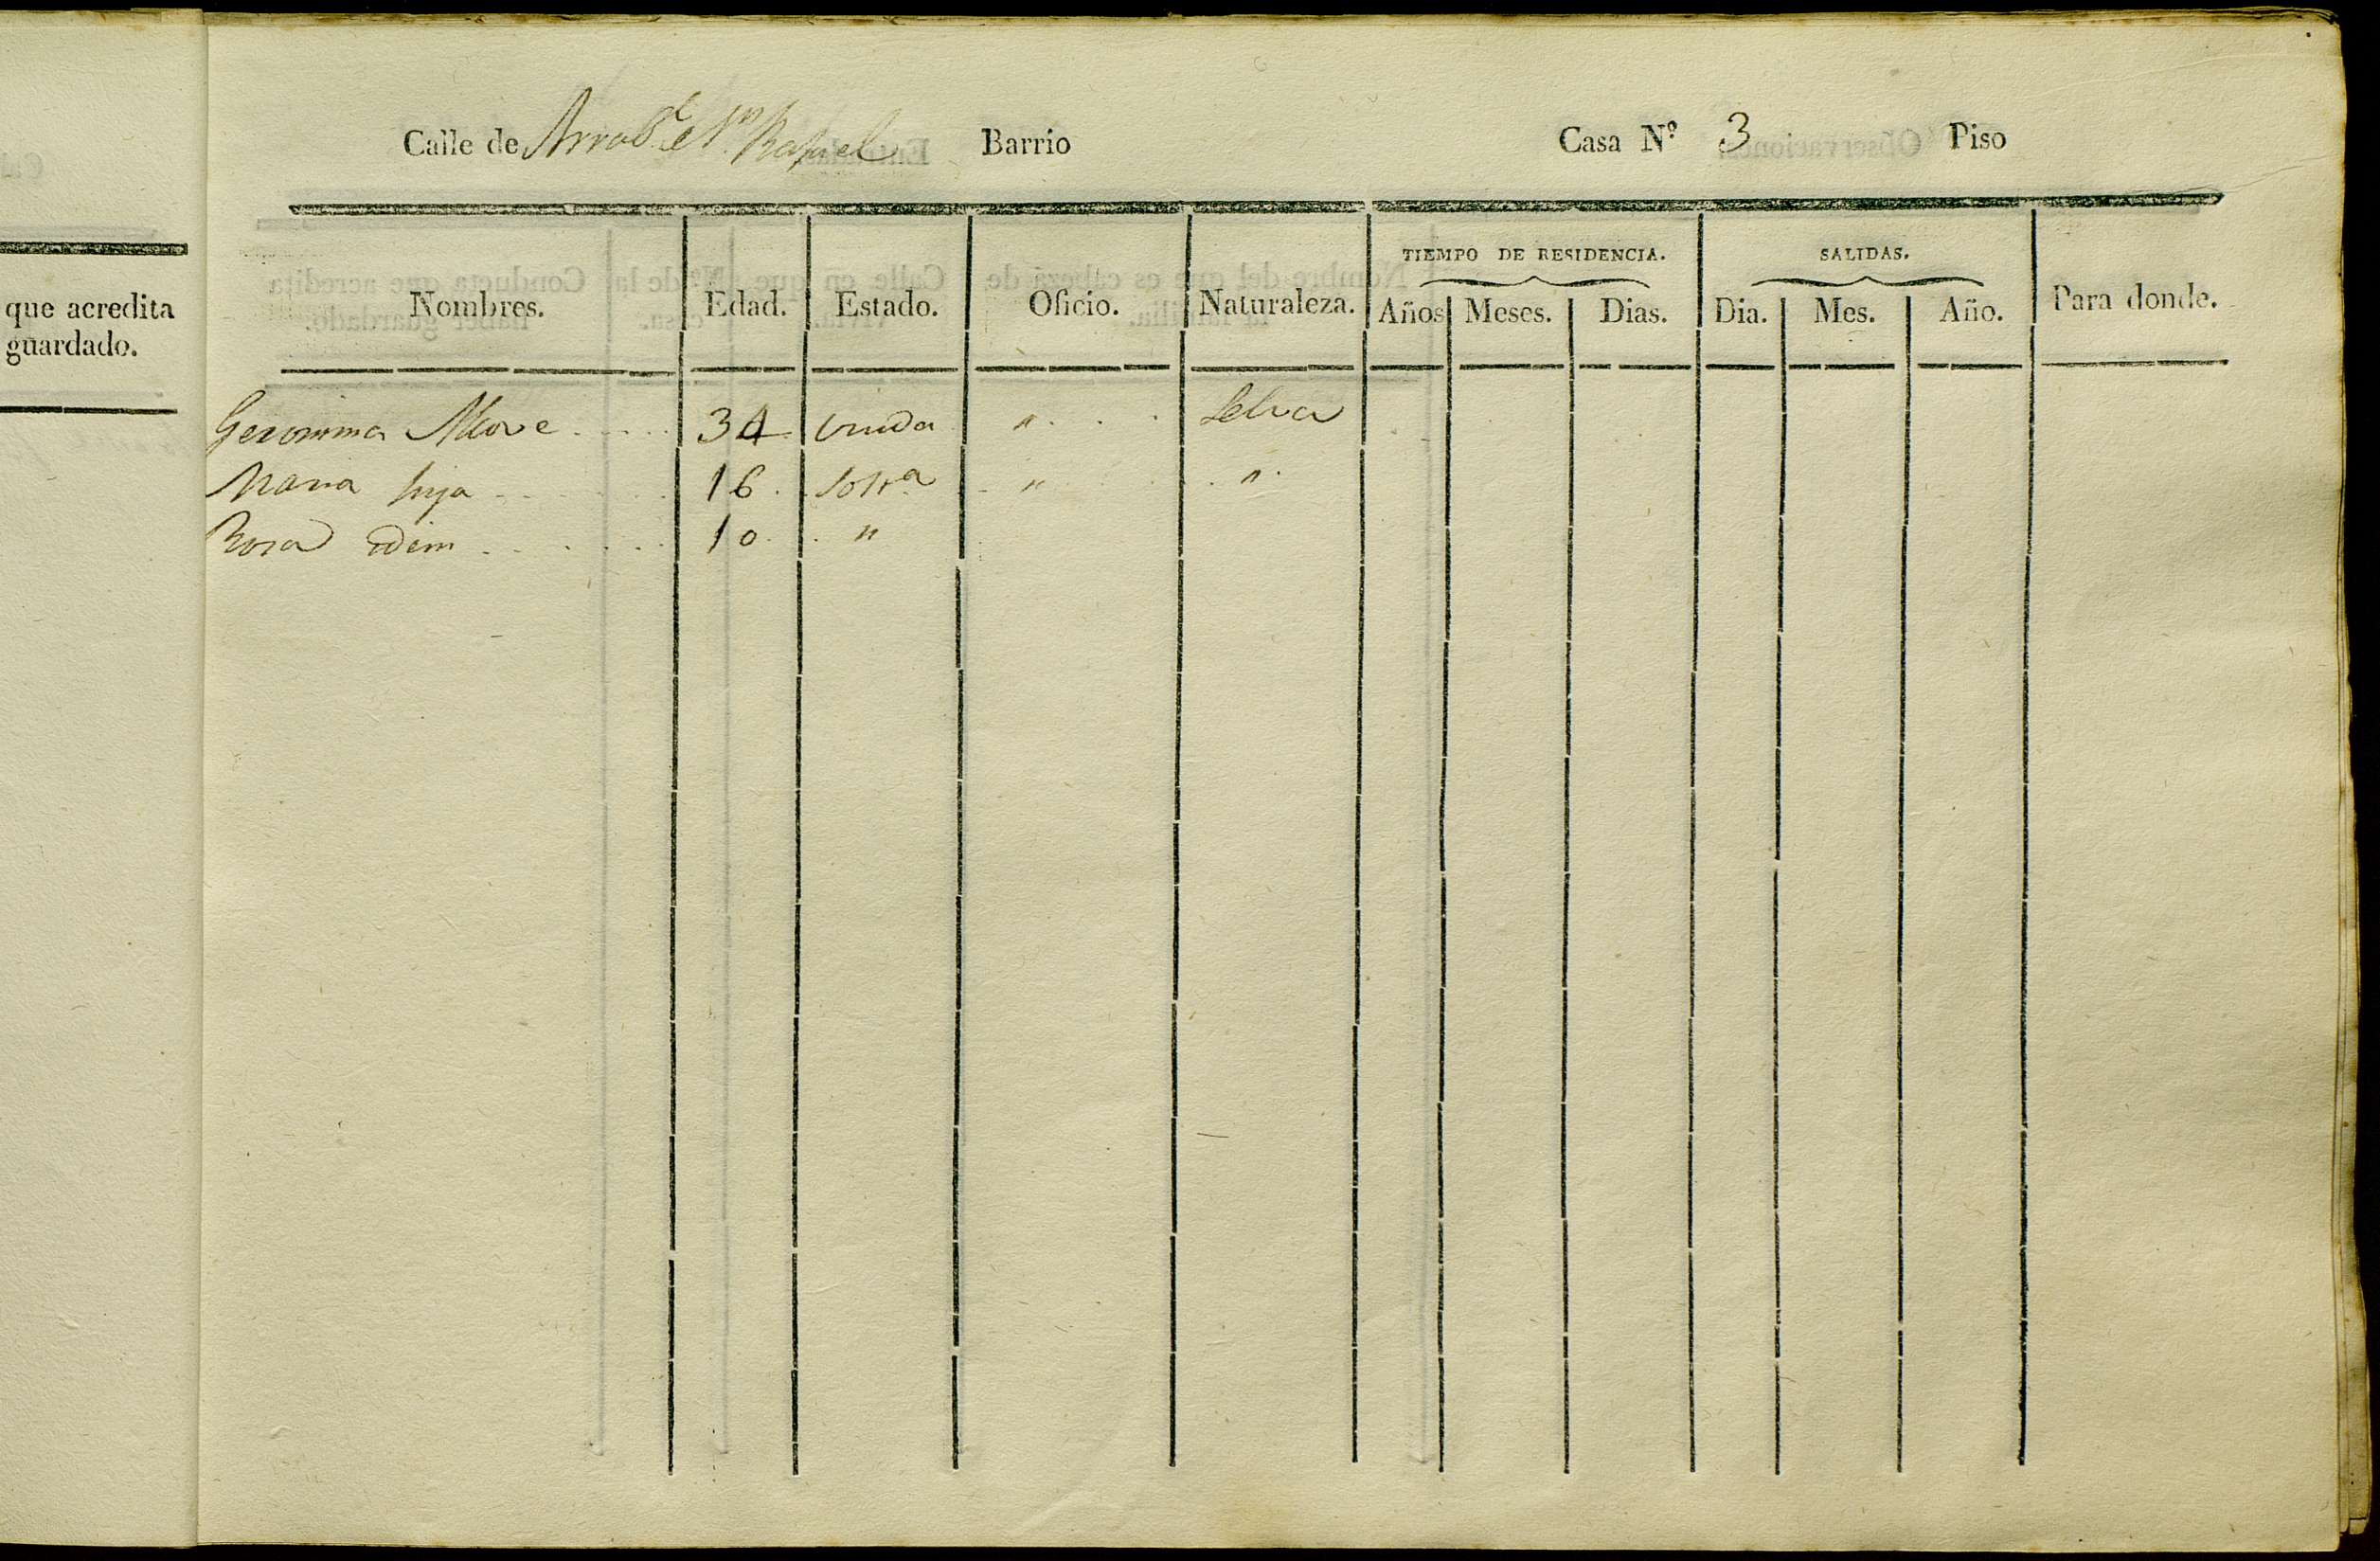 que acredita
guardado.
Calle de Arrabl. e Sn. Rafael Barrio Casa Nº 3 Piso
TIEMPO DE RESIDENCIA. SALIDAS.
Nombres. Edad. Estado. Oficio. Naturaleza. Años Meses. Dias. Dia. Mes. Año. Para donde.
Geronima 34 viuda " Selva
Maria hija 16 Soltra " "
Rosa idem 10 "